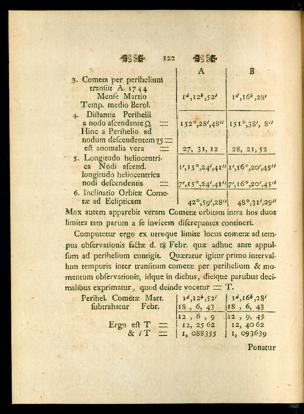 122
A B
3. Cometa per perihelium
transiit A. 1744
Mense Martio 1ᵈ,12ʰ,52′ 1ᵈ,16ʰ,28′
Temp. medio Berol.
4. Distantia Perihelii
a nodo ascendente ☊ = 152°,28′,48″ 151°,38′, 8″
Hinc a Perihelio ad
nodum descendentem ☋ =
est anomalia vera = 27, 31, 12 28, 21, 52
5. Longitudo heliocentri-
ca Nodi ascend. 1ˢ,15°,24′,41″ 1ˢ,16°,20′,45″
longitudo heliocentrica
nodi descendentis = 7ˢ,15°,24′,41″ 7ˢ,16°,20′,45″
6. Inclinatio Orbitæ Come-
tæ ad Eclipticam 42°,59′,28″ 48°,31′,29″
Mox autem apparebit veram Cometæ orbitam intra hos duos
limites tam parum a se invicem discrepantes contineri.
Computetur ergo ex utroque limite locus cometæ ad tem-
pus observationis factæ d. 18 Febr. quæ adhuc ante appul-
sum ad perihelium contigit. Quæratur igitur primo interval-
lum temporis inter transitum cometæ per perihelium & mo-
mentum observationis, idque in diebus, dieique partibus deci-
malibus exprimatur, quod deinde vocetur = T.
Perihel. Cometæ Mart. 1ᵈ,12ʰ,52′ 1ᵈ,16ʰ,28′
subtrahatur Febr. 18, 6, 43 18, 6, 43
12, 6, 9 12, 9, 45
Ergo est T = 12, 2562 12, 4062
& lT = 1, 088355 1, 093639
Ponatur